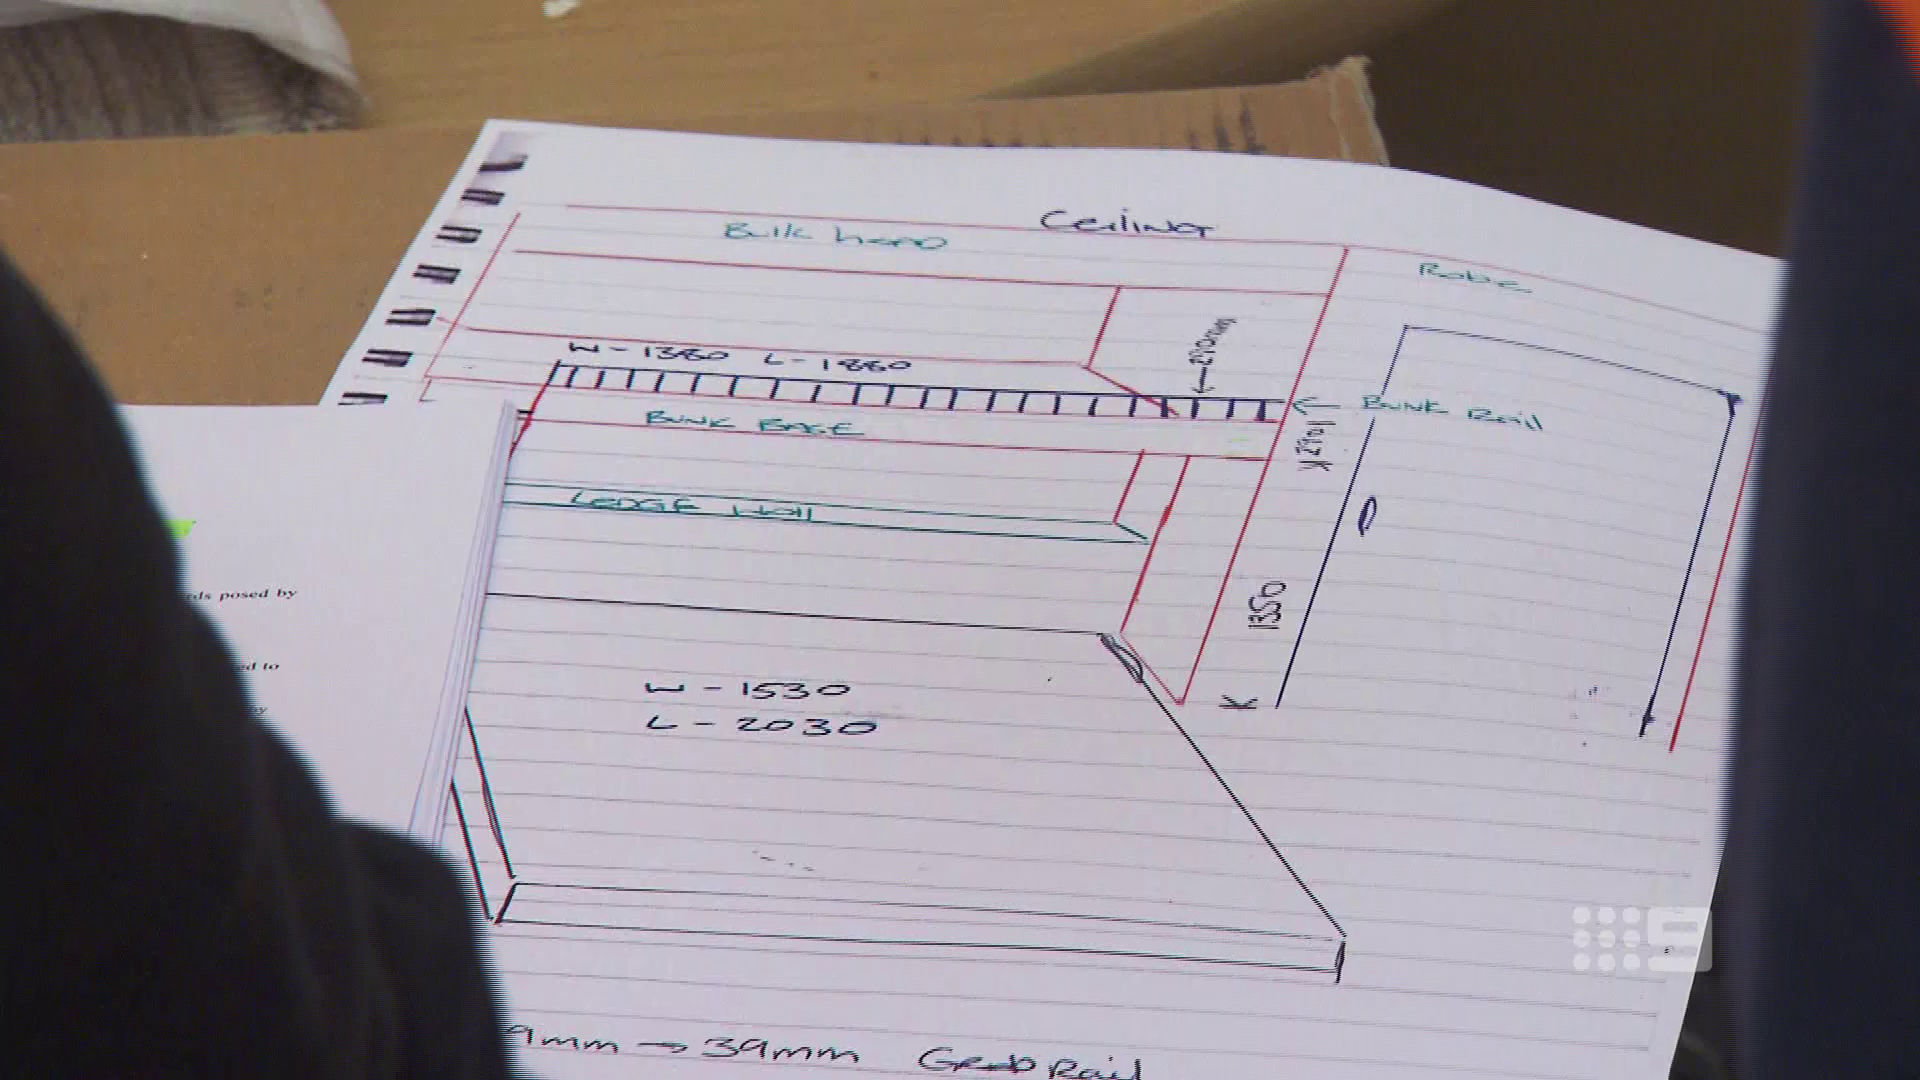 Ceiling
Bulk head
Robe
W - 1380 L - 1880
Bunk Rail
Bunk Base
Ledge Wall
1350
W - 1530
L - 2030
9mm → 39mm Grab Rail
ds posed by
ed to
by
9